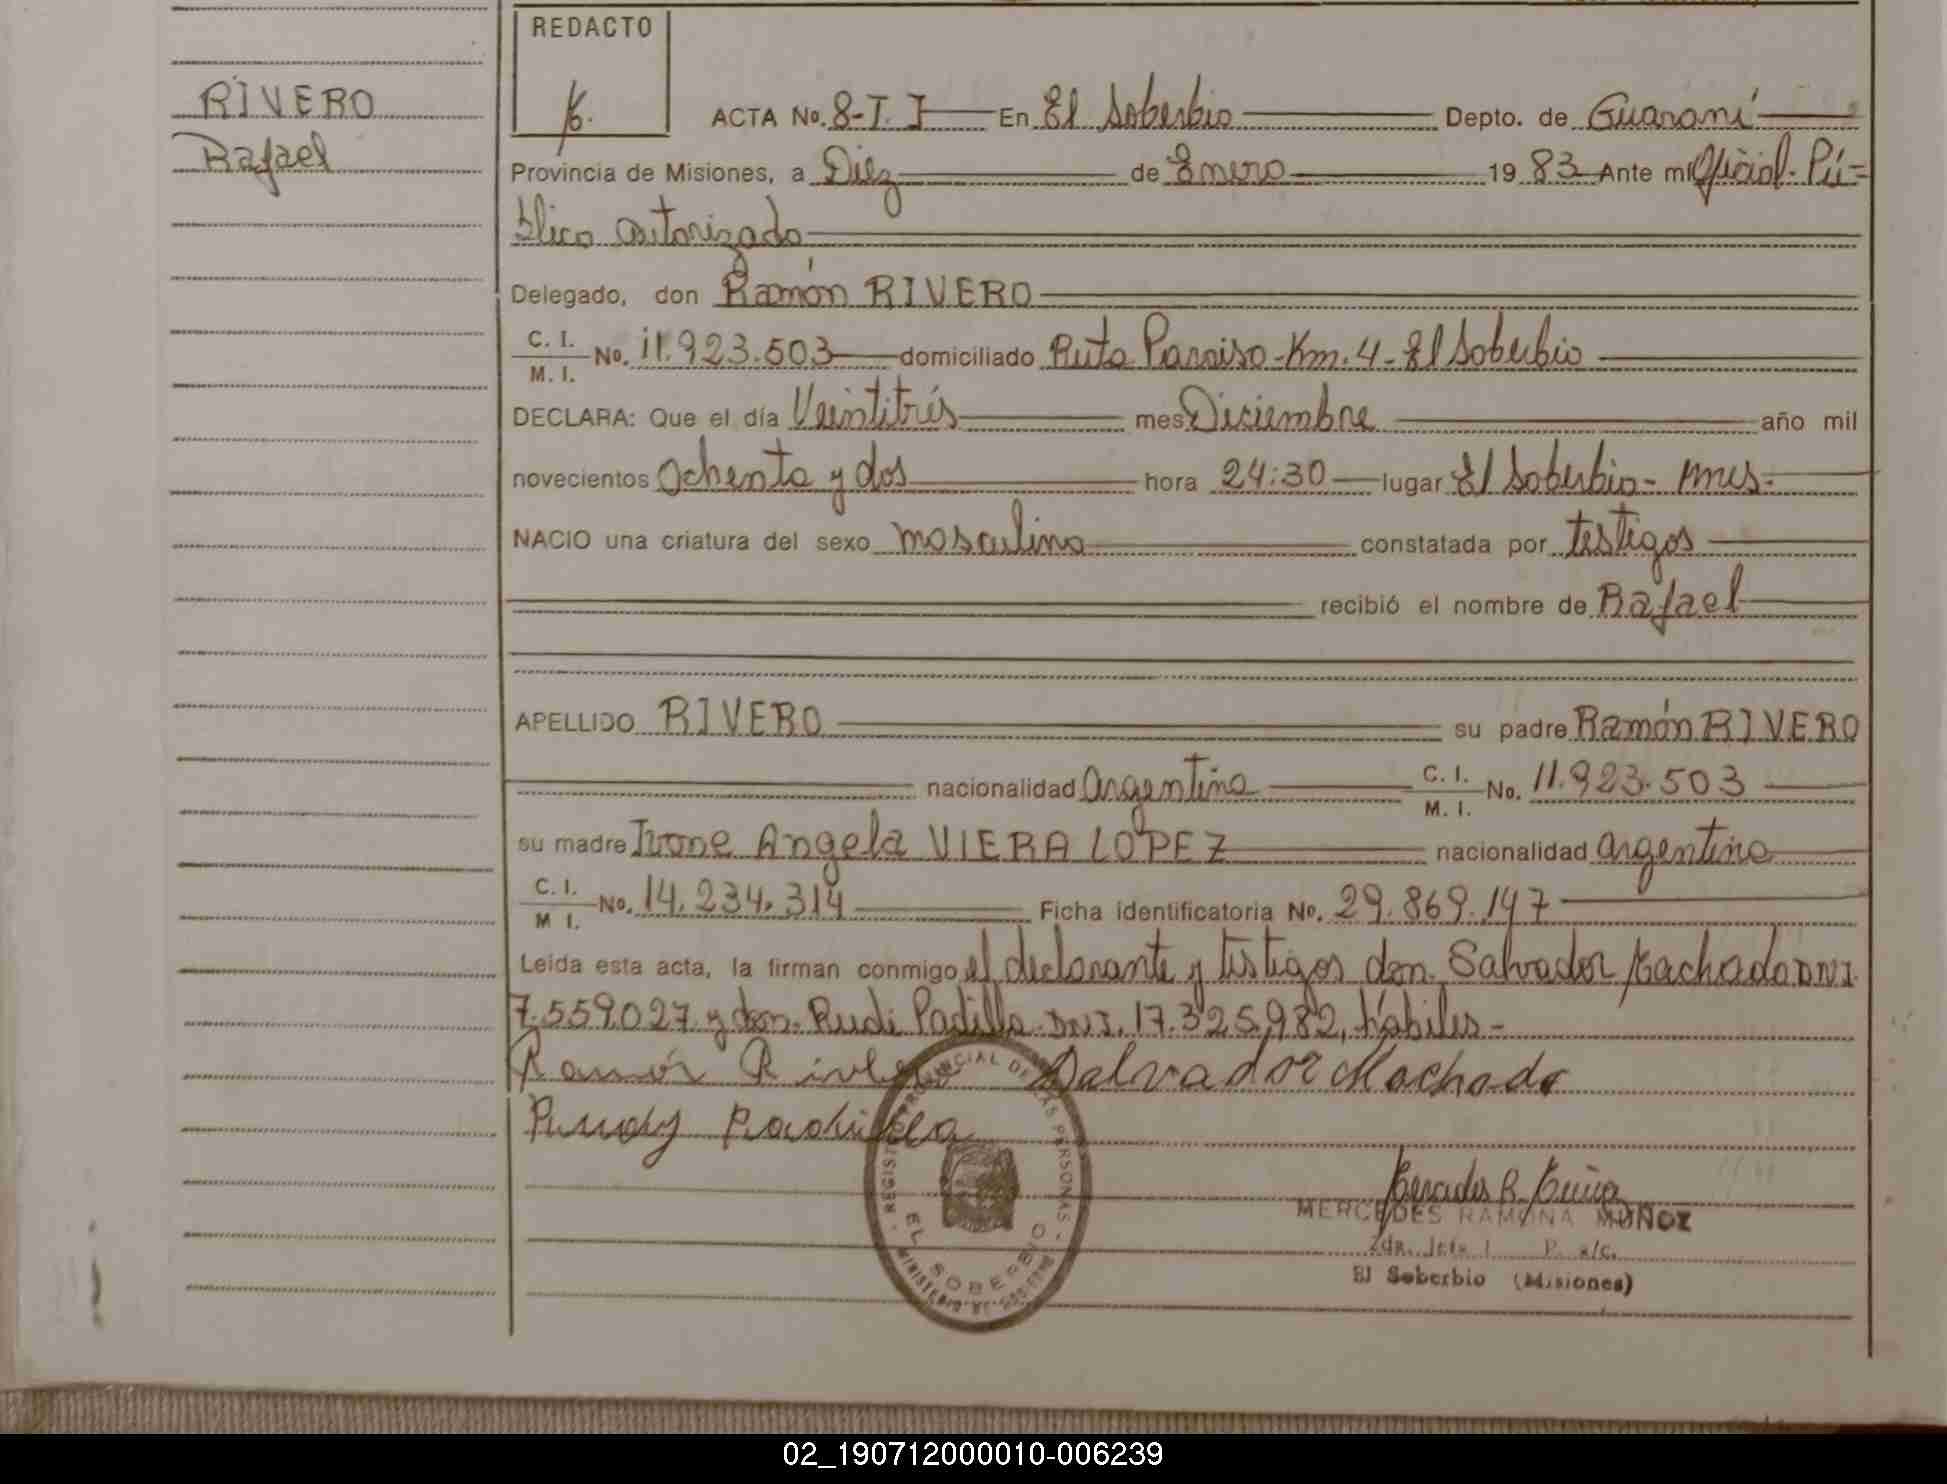 REDACTO
RIVERO
Rafael
ACTA No. 8-T. I En El Soberbio Depto. de Guaraní
Provincia de Misiones, a Diez de Enero 19 83 Ante mi Oficial Pú=
blico autorizado
Delegado, don Ramón RIVERO
C. I. / M. I. No. 11.923.503 domiciliado Ruta Paraiso-Km.4-El Soberbio
DECLARA: Que el día Veintitrés mes Diciembre año mil
novecientos Ochenta y dos hora 24:30 lugar El Soberbio- Mnes-
NACIO una criatura del sexo masculino constatada por testigos
recibió el nombre de Rafael
APELLIDO RIVERO su padre Ramón RIVERO
nacionalidad Argentina C. I. / M. I. No. 11.923.503
su madre Ivone Angela VIERA LOPEZ nacionalidad argentina
C. I. / M I. No. 14.234.314 Ficha identificatoria No. 29.869.147
Leida esta acta, la firman conmigo el declarante y testigos don Salvador Machado DNI.
7.559.027 y don Rudi Padilla DNI. 17.325.982, hábiles-
Ramón Rivero Salvador Machado
Rudy Padilla
REGISTRO PROVINCIAL DE LAS PERSONAS
EL SOBERBIO
MINISTERIO DE GOBIERNO
MERCEDES RAMONA MUÑOZ
El Soberbio (Misiones)
02_190712000010-006239